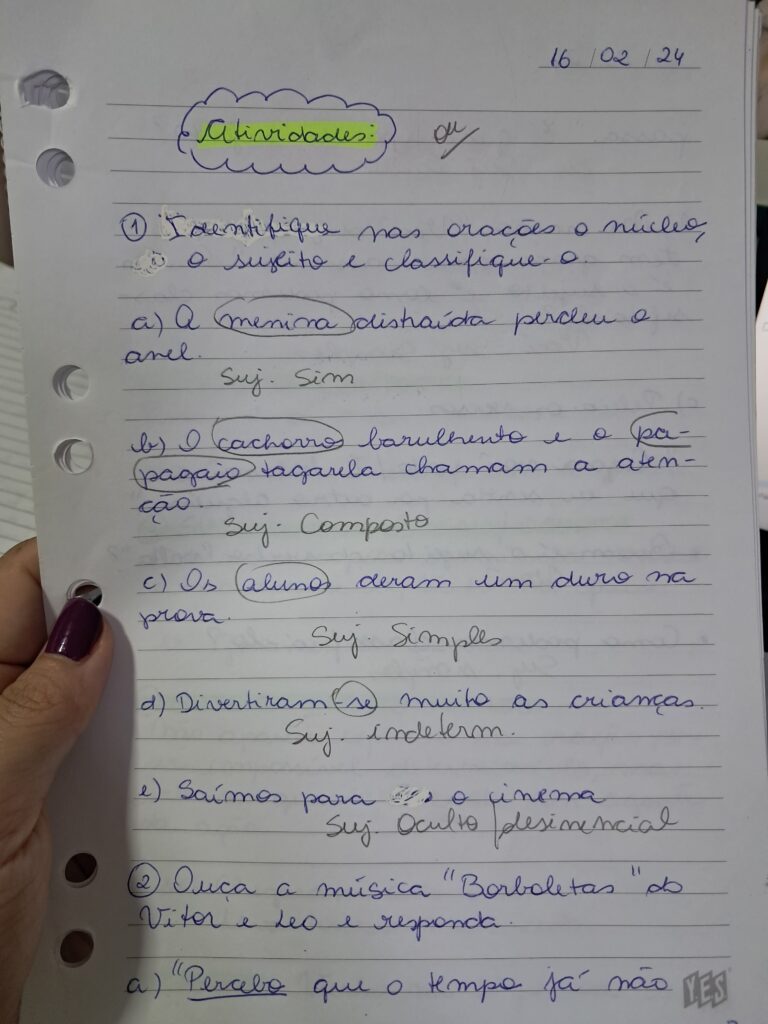 16 / 02 / 24
Atividades:
① Identifique nas orações o núcleo,
o sujeito e classifique-o.
a) A menina distraída perdeu o
anel.
Suj. Sim
b) O cachorro barulhento e o pa-
pagaio tagarela chamam a aten-
ção.
Suj. Composto
c) Os alunos deram um duro na
prova.
Suj. Simples
d) Divertiram-se muito as crianças.
Suj. indeterm.
e) Saímos para o cinema
Suj. Oculto/desinencial
② Ouça a música "Borboletas" do
Vitor e Leo e responda.
a) "Percebo que o tempo já não
YES